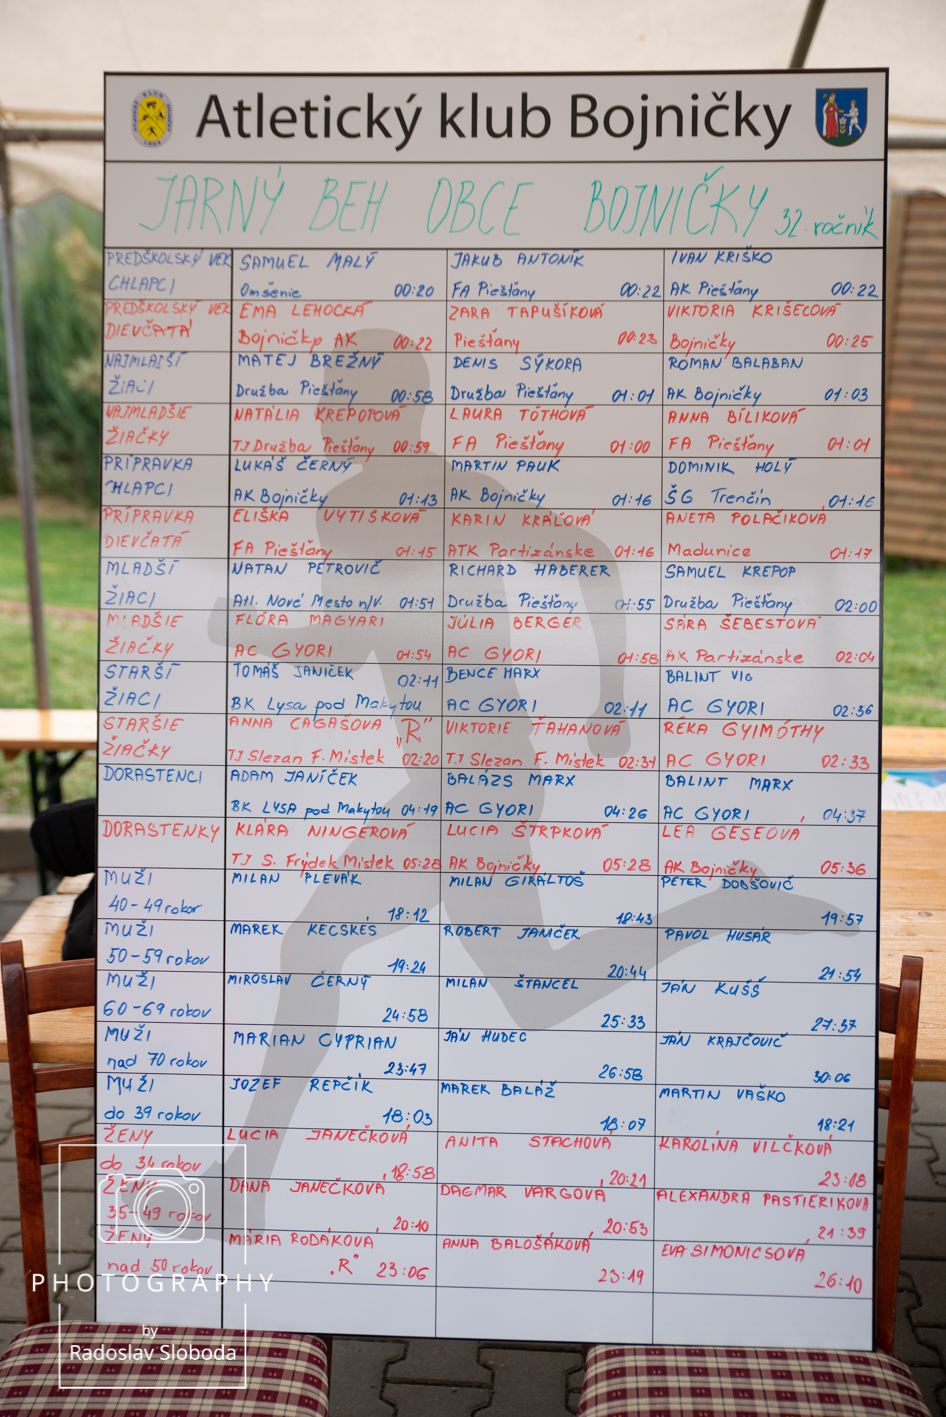 Atletický klub Bojničky
JARNÝ BEH OBCE BOJNIČKY 32. ročník
PREDŠKOLSKÝ VEK
CHLAPCI
SAMUEL MALÝ
Omšenie 00:20
JAKUB ANTONÍK
FA Piešťany 00:22
IVAN KRIŠKO
AK Piešťany 00:22
PREDŠKOLSKÝ VEK
DIEVČATÁ
EMA LEHOCKÁ
Bojničky AK 00:22
ZARA TAPUŠÍKOVÁ
Piešťany 00:23
VIKTÓRIA KRIŠECOVÁ
Bojničky 00:25
NAJMLADŠÍ
ŽIACI
MATEJ BREŽNÝ
Družba Piešťany 00:58
DENIS SÝKORA
Družba Piešťany 01:01
ROMAN BALABAN
AK Bojničky 01:03
NAJMLADŠIE
ŽIAČKY
NATÁLIA KREPOPOVÁ
TJ Družba Piešťany 00:59
LAURA TÓTHOVÁ
FA Piešťany 01:00
ANNA BÍLIKOVÁ
FA Piešťany 01:01
PRÍPRAVKA
CHLAPCI
LUKÁŠ ČERNÝ
AK Bojničky 01:13
MARTIN PAUK
AK Bojničky 01:16
DOMINIK HOLÝ
ŠG Trenčín 01:16
PRÍPRAVKA
DIEVČATÁ
ELIŠKA VYTISKOVÁ
FA Piešťany 01:15
KARIN KRÁĽOVÁ
ATK Partizánske 01:16
ANETA POLAČIKOVÁ
Madunice 01:17
MLADŠÍ
ŽIACI
NATAN PETROVIČ
Atl. Nové Mesto n/V. 01:51
RICHARD HABERER
Družba Piešťany 01:55
SAMUEL KREPOP
Družba Piešťany 02:00
MLADŠIE
ŽIAČKY
FLÓRA MAGYARI
AC GYORI 01:54
JÚLIA BERGER
AC GYORI 01:58
SÁRA ŠEBESTOVÁ
AK Partizánske 02:04
STARŠÍ
ŽIACI
TOMÁŠ JANIČEK 02:11
BK Lysa pod Makytou
BENCE MARX
AC GYORI 02:11
BALINT VIG
AC GYORI 02:36
STARŠIE
ŽIAČKY
ANNA CAGAŠOVÁ "R"
TJ Slezan F. Mistek 02:20
VIKTORIE ŤAHANOVÁ
TJ Slezan F. Mistek 02:31
RÉKA GYIMÓTHY
AC GYORI 02:33
DORASTENCI
ADAM JANÍČEK
BK LYSA pod Makytou 04:19
BALÁZS MARX
AC GYORI 04:26
BALINT MARX
AC GYORI 04:37
DORASTENKY
KLÁRA NINGEROVÁ
TJ S. Frýdek Mistek 05:28
LUCIA ŠTRPKOVÁ
AK Bojničky 05:28
LEA GESEOVÁ
AK Bojničky 05:36
MUŽI
40-49 rokov
MILAN PLEVÁK
18:12
MILAN GIRALTOŠ
18:43
PETER DOBŠOVIČ
19:57
MUŽI
50-59 rokov
MAREK KECSKÉS
19:24
RÓBERT JANÍČEK
20:44
PAVOL HUSÁR
21:54
MUŽI
60-69 rokov
MIROSLAV ČERNÝ
24:58
MILAN ŠTANCEL
25:33
JÁN KUŠŠ
27:37
MUŽI
nad 70 rokov
MARIAN CYPRIAN
23:47
JÁN HUDEC
26:58
JÁN KRAJČOVIČ
30:06
MUŽI
do 39 rokov
JOZEF REPČÍK
18:03
MAREK BALÁŽ
18:07
MARTIN VAŠKO
18:21
ŽENY
do 34 rokov
LUCIA JANEČKOVÁ
18:58
ANITA STACHOVÁ
20:21
KAROLÍNA VILČKOVÁ
23:08
ŽENY
35-49 rokov
DANA JANEČKOVÁ
20:10
DAGMAR VARGOVÁ
20:53
ALEXANDRA PASTIERIKOVÁ
21:39
ŽENY
nad 50 rokov
MÁRIA RODÁKOVÁ
"R" 23:06
ANNA BALOŠÁKOVÁ
23:19
EVA SIMONICSOVÁ
26:10
PHOTOGRAPHY
by
Radoslav Sloboda